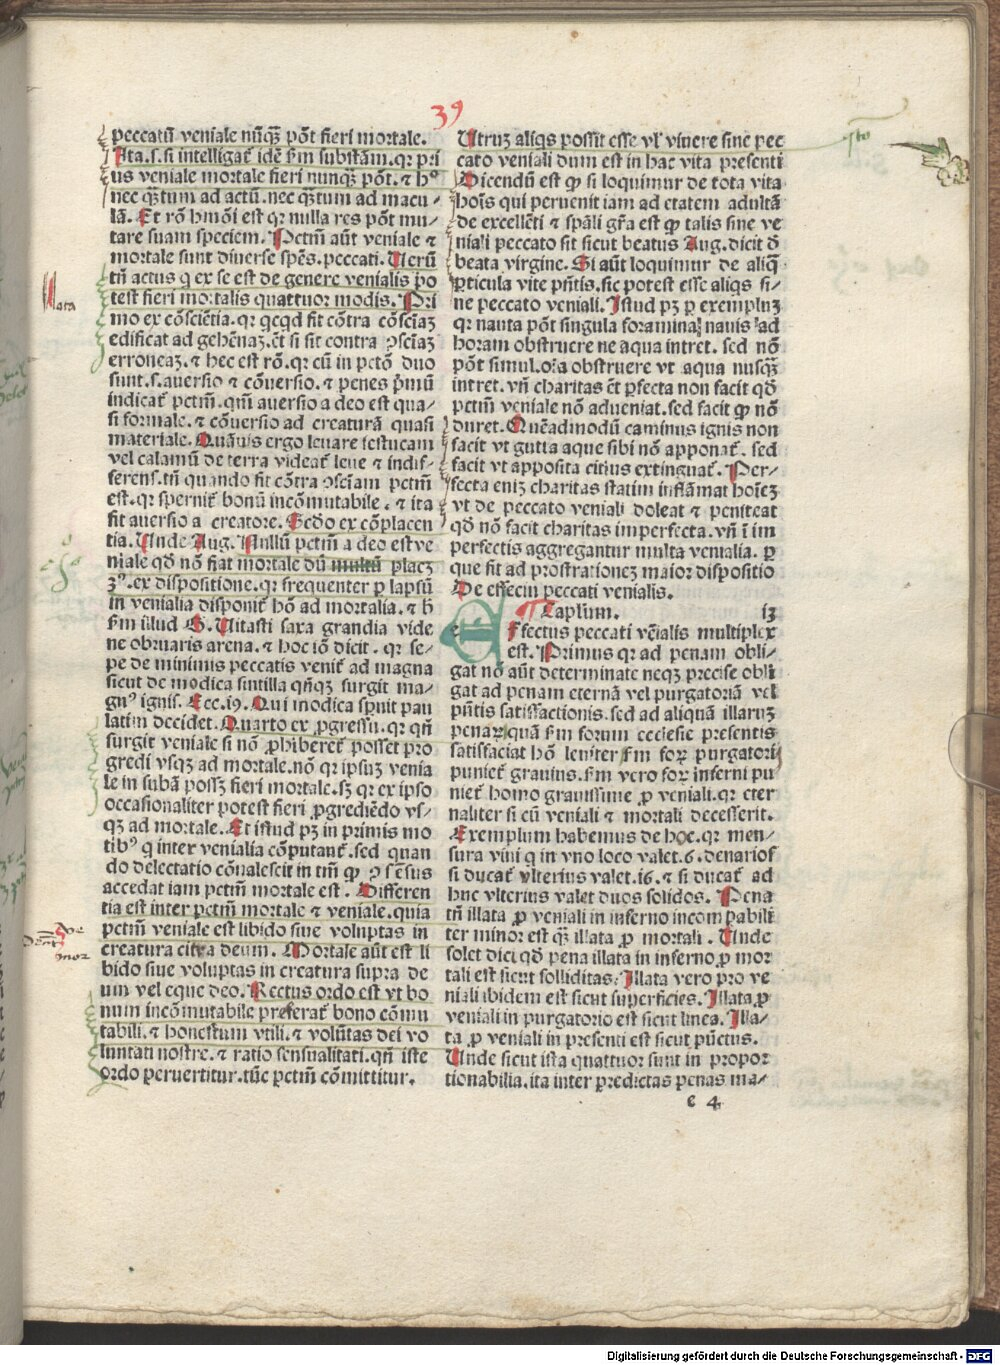 39
peccatū veniale nūq̄ꝫ pōt fieri mortale.
Ita.s.si intelligat᷑ idē ẜm substām.qꝛ pri
us veniale mortale fieri nunqꝫ pōt.⁊ hº
nec qꝫtum ad actū.nec qꝫtum ad macu⸗
lā. Et rō hmōi est qꝛ nulla res pōt mu⸗
tare suam speciem. Pctm̄ aūt veniale ⁊
mortale sunt diuerse spēs.peccati. Uerū
tn̄ actus q ex se est de genere venialis po
test fieri mortalis quattuor modis. Pri
mo ex cōsciētia.qꝛ qcqd fit cōtra cōsciaꝫ
edificat ad gehēnaꝫ.ēt si sit contra ꝯsciaꝫ
erroneaꝫ.⁊ hec est rō.qꝛ cū in pctō duo
sunt.s.auersio ⁊ cōuersio.⁊ penes p̄mū
indicat᷑ pctm̄.qm̄ auersio a deo est qua⸗
si formale.⁊ cōuersio ad creaturā quasi
materiale. Quāuis ergo leuare festucam
vel calamū de terra videat᷑ leue ⁊ indif⸗
ferens.tn̄ quando fit cōtra ꝯsciam pctm̄
est.qꝛ spernit᷑ bonū incōmutabile.⁊ ita
fit auersio a creatore. Secdo ex cōplacen
tia. Unde Aug. Nullū pctm̄ a deo est ve
niale qd̄ nō fiat mortale dū multū placꝫ
3º.ex dispositione.qꝛ frequenter ꝑ lapsū
in venialia disponit᷑ hō ad mortalia.⁊ h̄
ẜm illud G. Uitasti saxa grandia vide
ne obruaris arena.⁊ hoc iō dicit.qꝛ se⸗
pe de minimis peccatis venit᷑ ad magna
sicut de modica sintilla qn̄qꝫ surgit ma⸗
gnꝰ ignis. Ecc.i9. Qui modica spnit pau
latim decidet. Quarto ex ꝓgressu.qꝛ qn̄
surgit veniale si nō ꝓhiberet᷑ posset pro
gredi vsqꝫ ad mortale.nō qꝛ ipsuꝫ venia
le in subā possꝫ fieri mortale.sꝫ qꝛ ex ipso
occasionaliter potest fieri ꝓgrediēdo vs⸗
qꝫ ad mortale. Et istud pꝫ in primis mo
tibꝰ q inter venialia cōputant᷑.sed quan
do delectatio cōualescit in tm̄ ꝙ ꝯsēsus
accedat iam pctm̄ mortale est. Differen
tia est inter pctm̄ mortale ⁊ veniale.quia
pctm̄ veniale est libido siue voluptas in
creatura citra deum. Mortale aūt est li
bido siue voluptas in creatura supra de
um vel eque deo. Rectus ordo est vt bo
num incōmutabile preferat᷑ bono cōmu
tabili.⁊ honestum vtili.⁊ volūtas dei vo
luntati nostre.⁊ ratio sensualitati.qn̄ iste
ordo peruertitur.tūc pctm̄ cōmittitur.
Utruꝫ aliqs possit esse vl̓ viuere sine pec
cato veniali dum est in hac vita presenti
Dicendū est ꝙ si loquimur de tota vita
hoīs qui peruenit iam ad etatem adultā
de excellēti ⁊ spāli gr̄a est ꝙ talis sine ve
niali peccato sit sicut beatus Aug.dicit d̄
beata virgine. Si aūt loquimur de aliq̄
ꝑticula vite pn̄tis.sic potest esse aliqs si⸗
ne peccato veniali. Istud pꝫ ꝑ exempluꝫ
qꝛ nauta pōt singula foramina nauis ad
horam obstruere ne aqua intret. sed nō
pōt simul oīa obstruere vt aqua nusqꝫ
intret.vn̄ charitas ēt ꝑfecta non facit qd̄
pctm̄ veniale nō adueniat.sed facit ꝙ nō
duret. Quēadmodū caminus ignis non
facit vt gutta aque sibi nō apponat᷑. sed
facit vt apposita citius extinguat᷑. Per⸗
fecta eniꝫ charitas statim inflāmat hoīeꝫ
vt de peccato veniali doleat ⁊ peniteat
qd̄ nō facit charitas imperfecta.vn̄ ī im
perfectis aggregantur multa venialia. ꝑ
que fit ad prostrationeꝫ maior dispositio
De effectu peccati venialis.
Caplum. ix
Effectus peccati vēialis multiplex
est. Primus qꝛ ad penam obli⸗
gat nō aūt determinate neqꝫ precise obli
gat ad penam eternā vel purgatoriā vel
pn̄tis satisfactionis.sed ad aliquā illaruꝫ
penaꝝ quā ẜm forum ecclesie presentis
satisfaciat hō leuiter ẜm foꝝ purgatorij
puniet᷑ grauius.ẜm vero foꝝ inferni pu
niet᷑ homo grauissime ꝓ veniali.qꝛ eter
naliter si cū veniali ⁊ mortali decesserit.
Exemplum habemus de hoc.qꝛ men⸗
sura vini q in vno loco valet.6.denarios
si ducat᷑ vlterius valet.i6.⁊ si ducat᷑ ad
huc vlterius valet duos solidos. Pena
tn̄ illata ꝓ veniali in inferno incomꝑabili
ter minor est qꝫ illata ꝓ mortali. Unde
solet dici qd̄ pena illata in inferno.ꝓ mor
tali est sicut solliditas. Illata vero pro ve
niali ibidem est sicut superficies. Illata ꝓ
veniali in purgatorio est sicut linea. Illa⸗
ta ꝓ veniali in presenti est sicut pūctus.
Unde sicut ista quattuor sunt in propor
tionabilia.ita inter predictas penas ma⸗
e 4
Digitalisierung gefördert durch die Deutsche Forschungsgemeinschaft - DFG